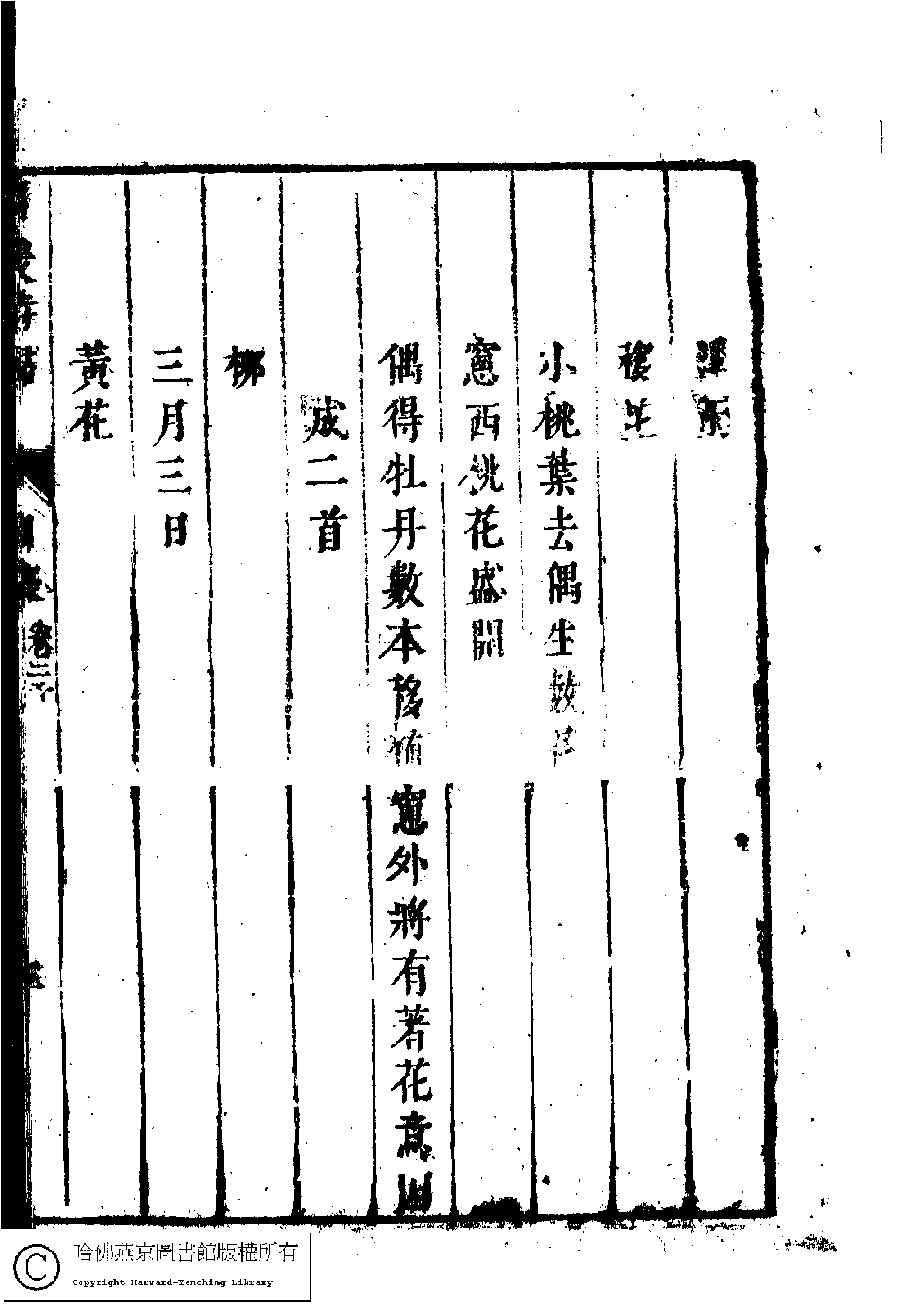 小桃葉去偶生數
窻西桃花盛開
偶得牡丹數本移植窻外將有著花意因
成二首
柳
三月三日
黃花
卷三
哈佛燕京圖書館版權所有
Copyright Harvard-Yenching Library